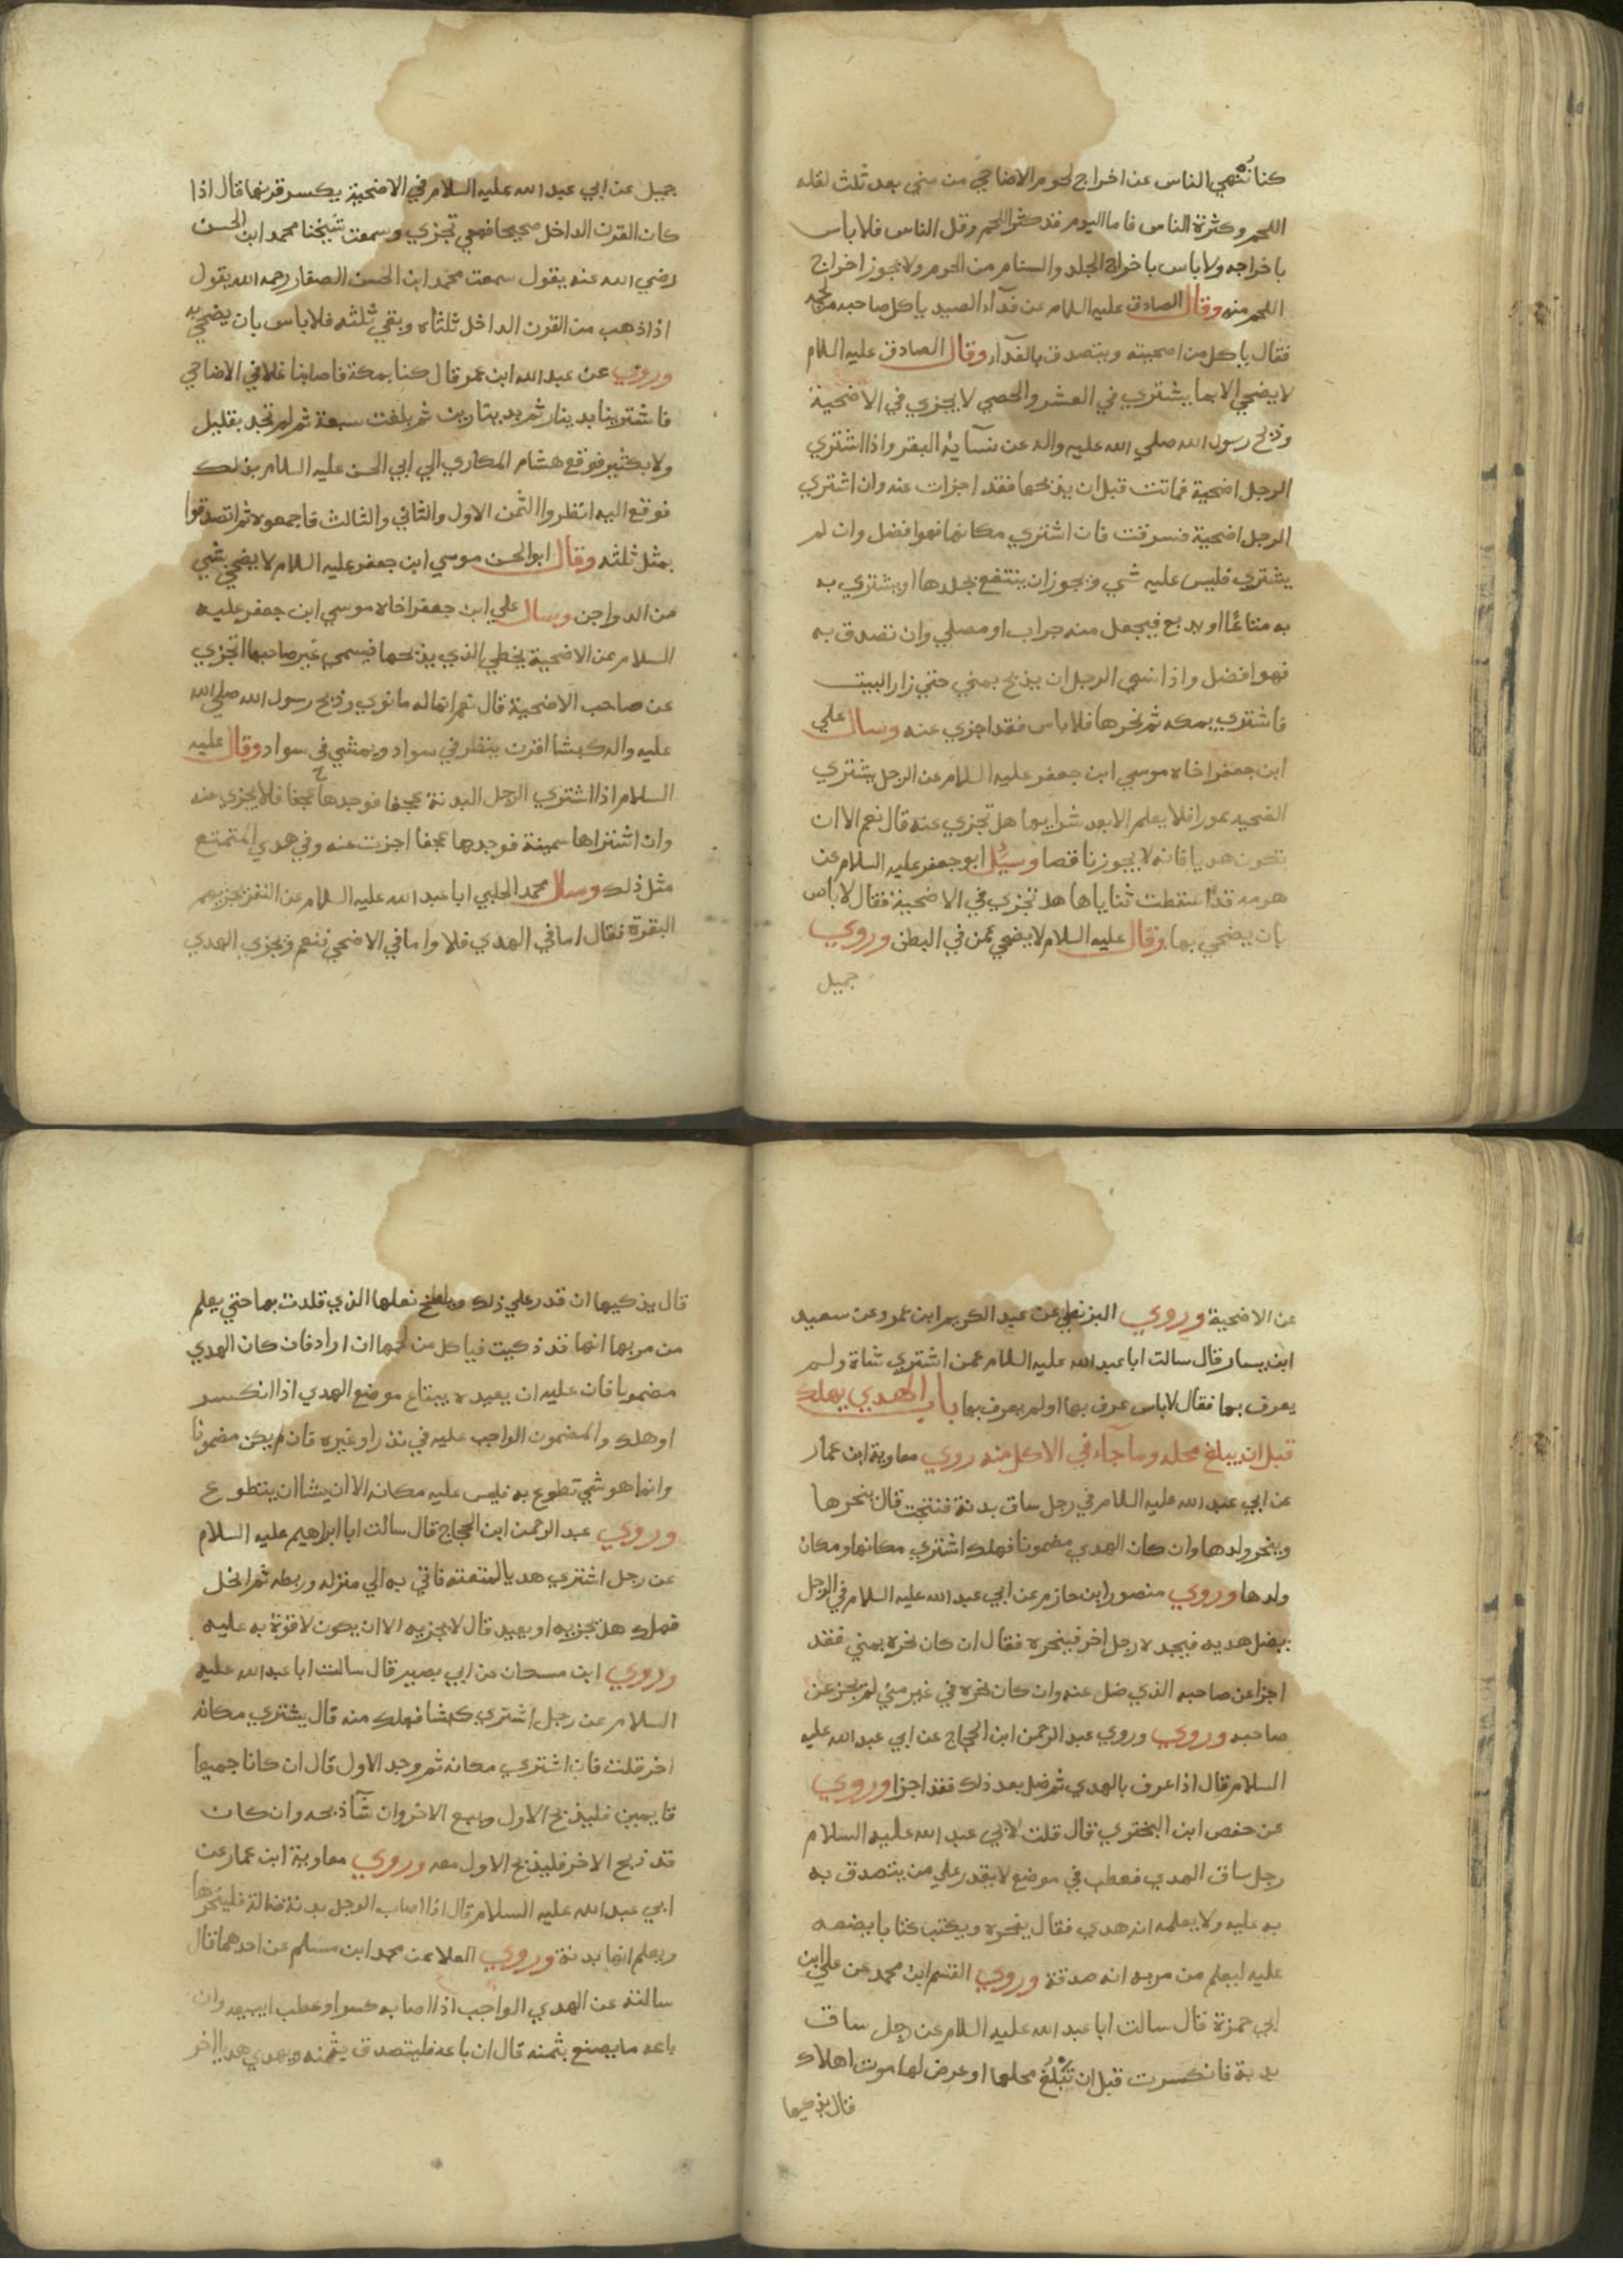 كنا ننهي الناس عن اخراج لحوم الاضاحي من مني بعد ثلث لقله
اللحم وكثرة الناس فاما اليوم فقد كثر اللحم وقل الناس فلا باس
باخراجه ولا باس باخراج الجلد والسنام من الحرم ولا يجوز اخراج
اللحم منه وقال الصادق عليه السلام عن فدآء الصيد ياكل صاحبه من لحمه
فقال ياكل من اضحيته ويتصدق بالفدآء وقال الصادق عليه السلام
لا يضحي الا بما يشتري في العشر والخصي لا يجزي في الاضحية
وذبح رسول الله صلي الله عليه واله عن نسآيه البقر واذا اشتري
الرجل اضحية فماتت قبل ان يذبحها فقد اجزات عنه وان اشتري
الرجل اضحية فسرقت فان اشتري مكانها فهو افضل وان لم
يشتري فليس عليه شي ويجوز ان ينتفع بجلدها او يشتري به
به متاعًا او يدبغ فيجعل منه جراب او مصلي وان تصدق به
فهو افضل واذا نسي الرجل ان يذبح بمني حتي زار البيت
فاشتري بمكه ثم نحرها فلا باس فقد اجزي عنه وسال علي
ابن جعفر اخاه موسي ابن جعفر عليه السلام عن الرجل يشتري
الضحيه عورا فلا يعلم الا بعد شرايها هل تجزي عنه قال نعم الا ان
تكون هديا فانه لا يجوز ناقصا وسيُل ابو جعفر عليه السلام عن
هرمه قد سقطت ثناياها هل تجزي في الاضحية فقال لا باس
بان يضحي بها وقال عليه السلام لا يضحي عمن في البطن وروي
جميل
جميل عن ابي عبد الله عليه السلام في الاضحية يكسر قرنها قال اذا
كان القرن الداخل صحيحا فهي تجزي وسمعت شيخنا محمد ابن الحسن
رضي الله عنه يقول سمعت محمد ابن الحسن الصفار رحمه الله يقول
اذا ذهب من القرن الداخل ثلثاه وبقي ثلثه فلا باس بان يضحي به
وروي عن عبد الله ابن عمر قال كنا بمكة فاصابنا غلا في الاضاحي
فاشترينا بدينار ثم بدينارين ثم بلغت سبعة ثم لم نجد بقليل
ولا بكثير فوقع هشام المكاري الي ابي الحسن عليه السلام بذلك
فوقع اليه انظروا الثمن الاول والثاني والثالث فاجمعوه ثم تصدقوا
بمثل ثلثه وقال ابو الحسن موسي ابن جعفر عليه السلام لا يضحي بشي
من الدواجن وسال علي ابن جعفر اخاه موسي ابن جعفر عليه
السلام عن الاضحية يخطي الذي يذبحها فيسمي غير صاحبها اتجزي
عن صاحب الاضحية قال نعم انما له ما نوي وذبح رسول الله صلي الله
عليه واله كبشا اقرن ينظر في سواد ويمشي في سواد وقال عليه
السلام اذا اشتري الرجل البدنة عجفا فوجدها عجفا فلا يجزي عنه
وان اشتراها سمينة فوجدها عجفا اجزت عنه وفي هدي المتمتع
مثل ذلك وسال محمد الحلبي ابا عبد الله عليه السلام عن النفر تجزيهم
البقرة فقال اما في الهدي فلا واما في الاضحي فنعم ويجزي الهدي
عن الاضحية وروي البزنطي عن عبد الكريم ابن عمرو عن سعيد
ابن يسار قال سالت ابا عبد الله عليه السلام عمن اشتري شاة ولم
يعرف بها فقال لا باس عرف بها او لم يعرف بها باب الهدي يهلك
قبل ان يبلغ محله وما جآء في الاكل منه روي معاوية ابن عمار
عن ابي عبد الله عليه السلام في رجل ساق بدنة فنتجت قال ينحرها
وينحر ولدها وان كان الهدي مضمونا فهلك اشتري مكانها ومكان
ولدها وروي منصور ابن حازم عن ابي عبد الله عليه السلام في الرجل
يضل هديه فيجده رجل اخر فينحره فقال ان كان نحره بمني فقد
اجزا عن صاحبه الذي ضل عنه وان كان نحره في غير مني لم يجز عن
صاحبه وروي وروي عبد الرحمن ابن الحجاج عن ابي عبد الله عليه
السلام قال اذا عرف بالهدي ثم ضل بعد ذلك فقد اجزا وروي
عن حفص ابن البختري قال قلت لابي عبد الله عليه السلام
رجل ساق الهدي فعطب في موضع لا يقدر علي من يتصدق به
به عليه ولا يعلمه انه هدي فقال ينحره ويكتب كتابا يضعه
عليه ليعلم من مر به انه صدقة وروي القسم ابن محمد عن علي ابن
ابي حمزة قال سالت ابا عبد الله عليه السلام عن رجل ساق
بدنة فانكسرت قبل ان تبلغ محلها او عرض لها موت او هلاك
قال يذكيها
قال يذكيها ان قدر علي ذلك ويلطخ نعلها الذي قلدت بها حتي يعلم
من مر بها انها قد ذكيت فياكل من لحمها ان اراد فان كان الهدي
مضمونا فان عليه ان يعيده يبتاع موضع الهدي اذا انكسر
او هلك والمضمون الواجب عليه في نذر او غيره فان لم يكن مضمونا
وانما هو شي تطوع به فليس عليه مكانه الا ان يشا ان يتطوع
وروي عبد الرحمن ابن الحجاج قال سالت ابا ابراهيم عليه السلام
عن رجل اشتري هديا لمتعته فاتي به الي منزله وربطه ثم انحل
فهلك هل يجزيه او يعيد قال لا يجزيه الا ان يكون لا قوة به عليه
وروي ابن مسكان عن ابي بصير قال سالت ابا عبد الله عليه
السلام عن رجل اشتري كبشا فهلك منه قال يشتري مكانه
اخر قلت فان اشتري مكانه ثم وجد الاول قال ان كانا جميعا
قايمين فليذبح الاول وليبع الاخر وان شآ ذبحه وان كان
قد ذبح الاخر فليذبح الاول معه وروي معاوية ابن عمار عن
ابي عبد الله عليه السلام قال اذا اصاب الرجل بدنة ضالة فلينحرها
ويعلم انها بدنة وروي العلا عن محمد ابن مسلم عن احدهما قال
سالته عن الهدي الواجب اذا اصابه كسر او عطب ايبيعه وان
باعه ما يصنع بثمنه قال ان باعه فليتصدق بثمنه ويهدي هديا اخر